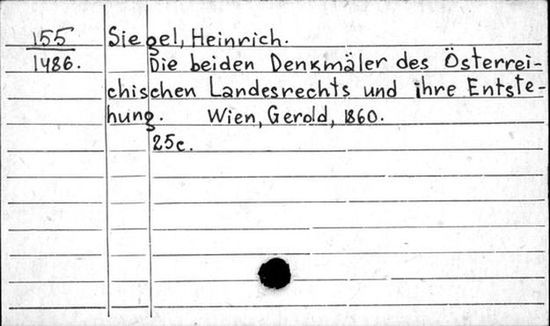 155 Siegel, Heinrich.
1486. Die beiden Denkmäler des Österrei-
chischen Landesrechts und ihre Entste-
hung. Wien, Gerold, 1860.
25c.